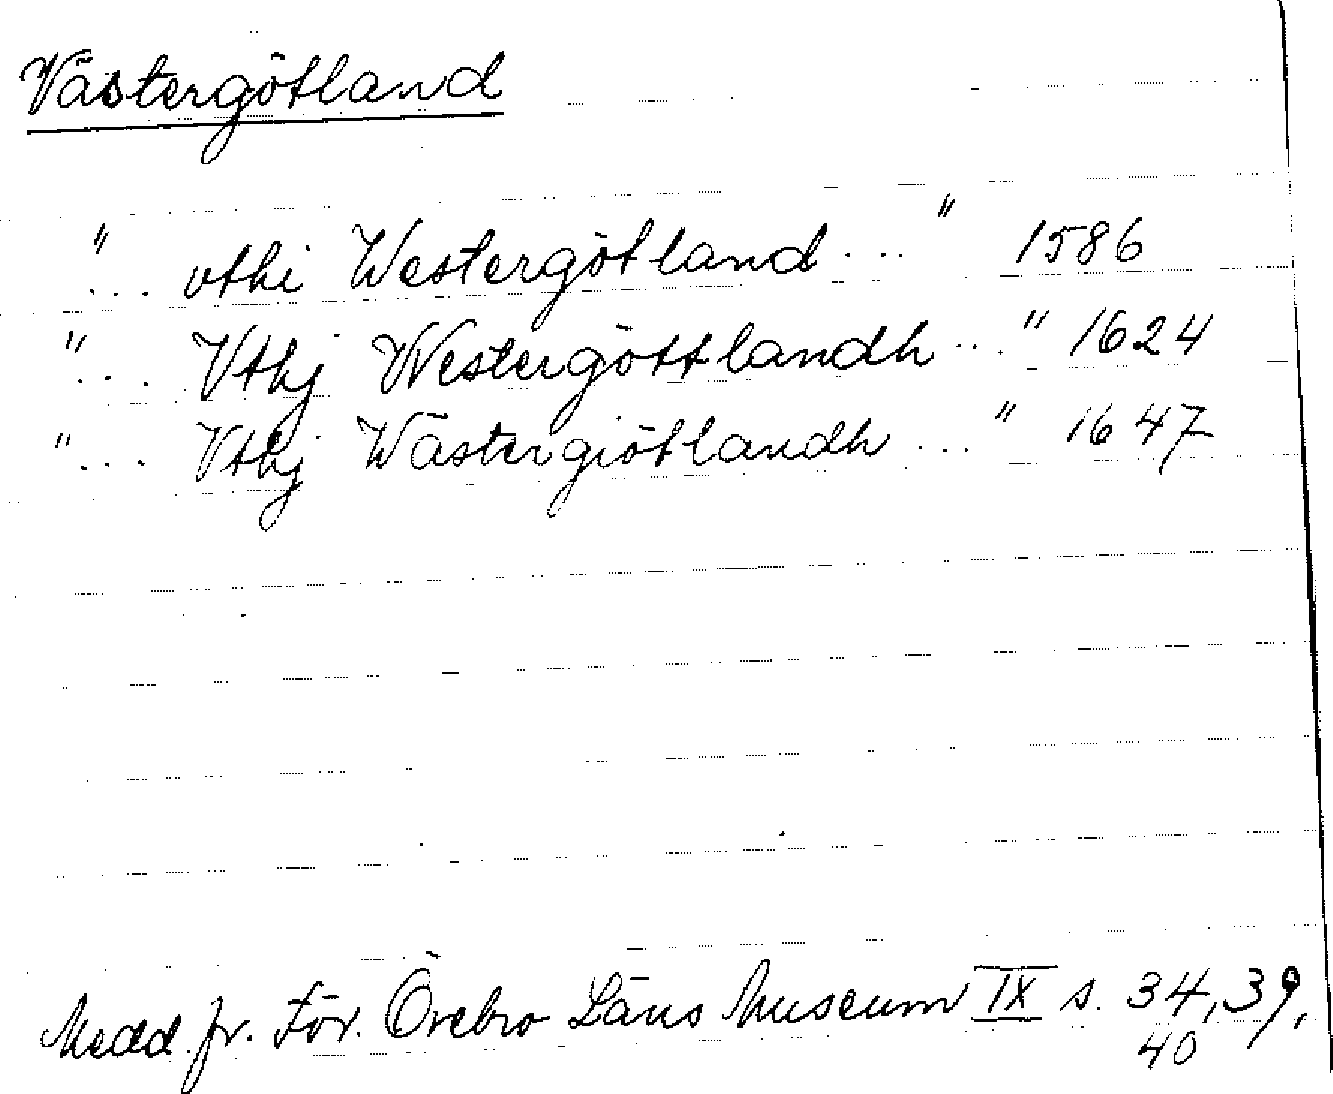 Västergötland
"... vthi Westergötland ..." 1586
"... Vthj Westergöttlandh ..." 1624
"... Vthj Wästergiötlandh ..." 1647
Medd. fr. För. Örebro Läns Museum IX s. 34, 39,
40